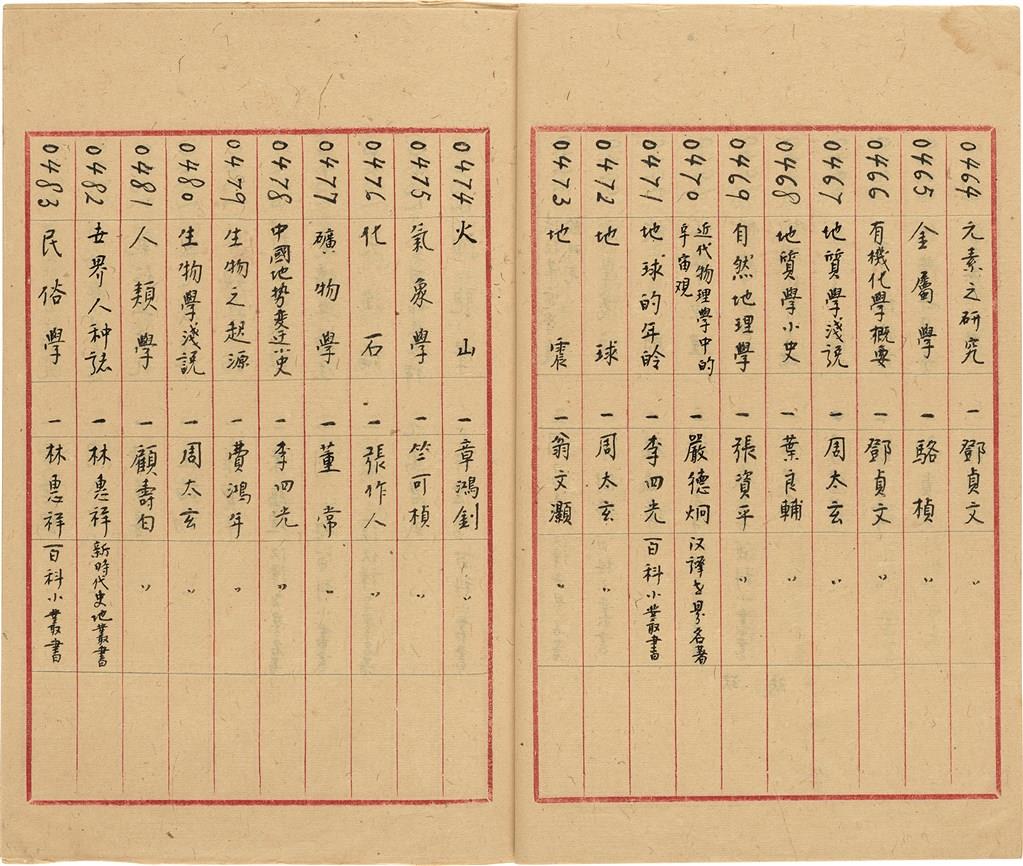 0464 元素之研究 一 鄧貞文 〃
0465 金屬學 一 駱楨 〃
0466 有機化學概要 一 鄧貞文 〃
0467 地質學淺説 一 周太玄 〃
0468 地質學小史 一 葉良輔 〃
0469 自然地理學 一 張資平 〃
0470 近代物理學中的宇宙观 一 嚴德炯 汉译世界名著
0471 地球的年龄 一 李四光 百科小叢書
0472 地球 一 周太玄 〃
0473 地震 一 翁文灝 〃
0474 火山 一 章鴻釗 〃
0475 氣象學 一 竺可楨 〃
0476 化石 一 張作人 〃
0477 礦物學 一 董常 〃
0478 中國地势変迁小史 一 李四光 〃
0479 生物之起源 一 費鴻年 〃
0480 生物學淺説 一 周太玄 〃
0481 人類學 一 顧壽白 〃
0482 世界人种誌 一 林惠祥 新時代史地叢書
0483 民俗學 一 林惠祥 百科小叢書